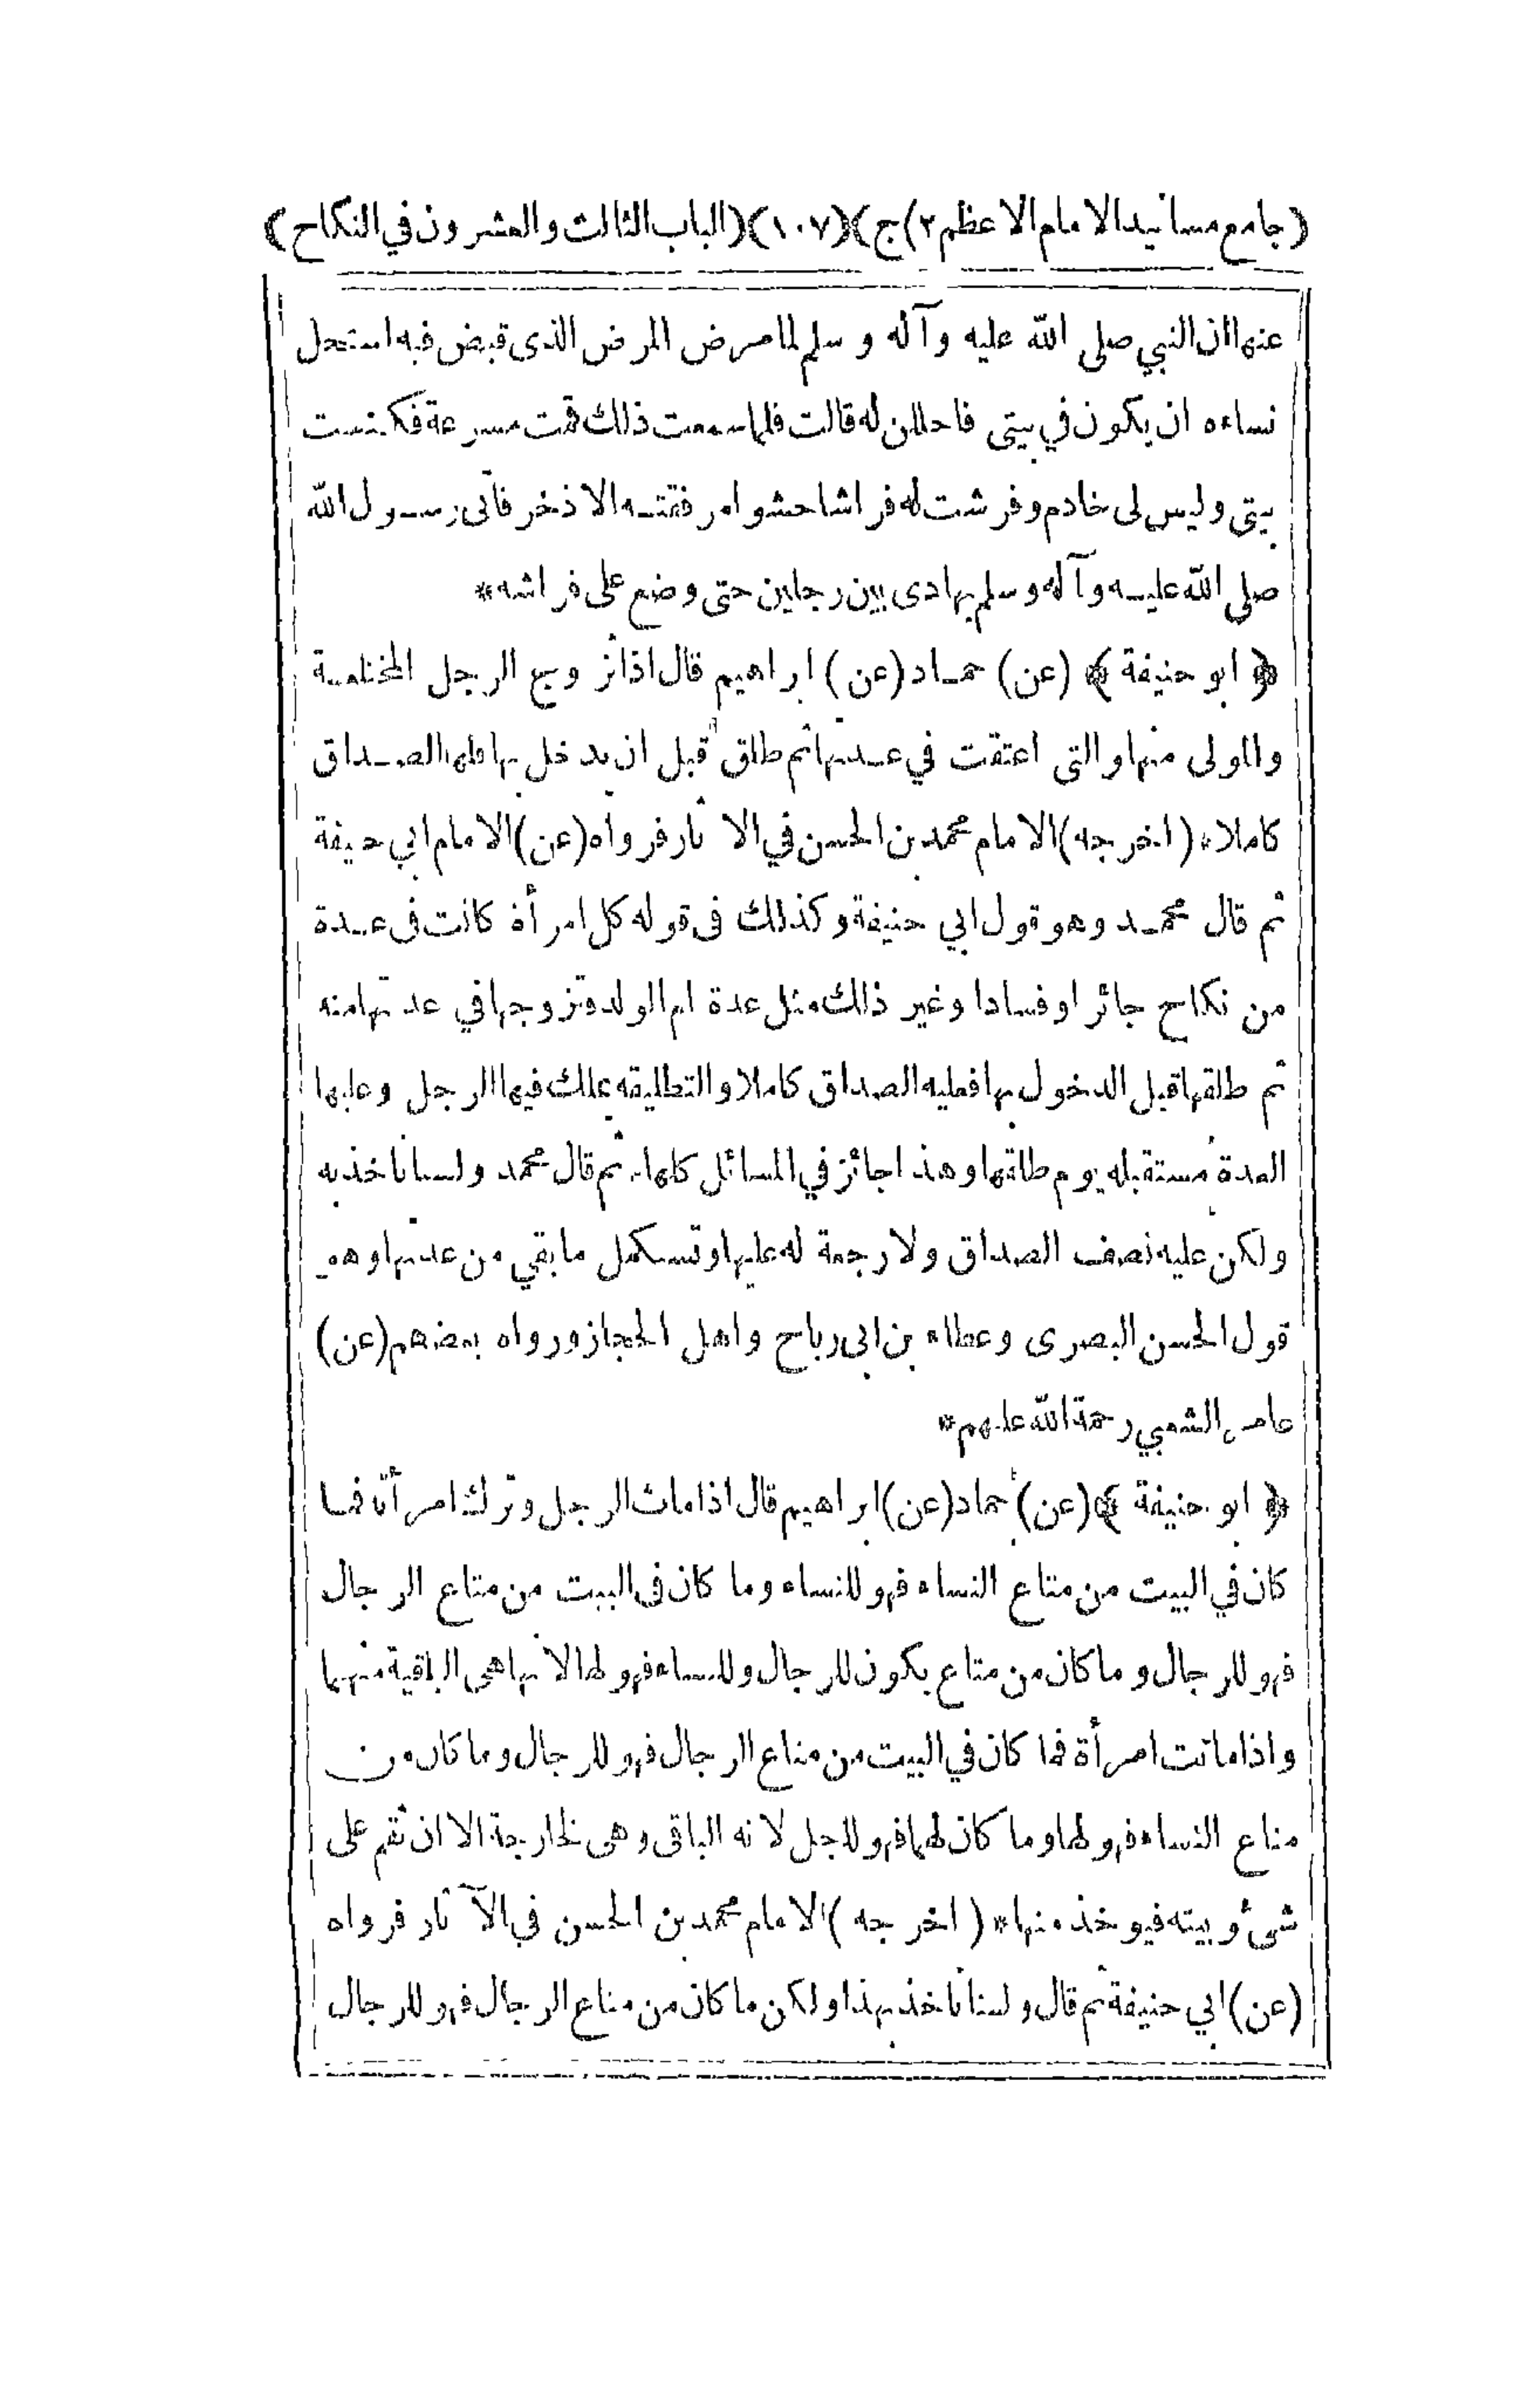 (جامع مسانيد الامام الاعظم ٢)ج)(١٠٧)(الباب الثالث والعشرون في النكاح)
عنها ان النبي صلى الله عليه وآله و سلم لما مرض المرض الذى قبض فيه استحل
نساءه ان يكون في بيتى فاحللن له قالت فلما سمعت ذلك قمت مسرعة فكنست
بيتى وليس لى خادم وفرشت له فراشا حشو مرفقته الاذخر فأتى رسول الله
صلى الله عليه وآله وسلم يهادى بين رجلين حتى وضع على فراشه*
﴿ ابو حنيفة ﴾ (عن) حماد (عن) ابراهيم قال اذا تزوج الرجل المختلعة
والمولى منها والتى اعتقت في عدتها ثم طلق قبل ان يدخل بها فلها الصداق
كاملا* (اخرجه) الامام محمد بن الحسن في الاثار فرواه (عن) الامام ابي حنيفة
ثم قال محمد وهو قول ابي حنيفة وكذلك فى قوله كل امرأة كانت فى عدة
من نكاح جائز او فسادا وغير ذلك مثل عدة ام الولد فتزوجها في عدتها منه
ثم طلقها قبل الدخول بها فعليه الصداق كاملا والتطليقه يملك فيها الرجل وعليها
العدة مستقبله يوم طلقها وهذا جائز في المسائل كلها* ثم قال محمد ولسنا نأخذ به
ولكن عليه نصف الصداق ولا رجعة له عليها وتستكمل ما بقي من عدتها وهو
قول الحسن البصرى وعطاء بن ابى رباح واهل الحجاز ورواه بعضهم (عن)
عامر الشعبي رحمة الله عليهم*
﴿ ابو حنيفة ﴾ (عن) حماد (عن) ابراهيم قال اذا مات الرجل وترك امرأته فما
كان في البيت من متاع النساء فهو للنساء وما كان فى البيت من متاع الرجال
فهو للرجال وما كان من متاع يكون للرجال وللنساء فهو لها لانها هى الباقية منهما
واذا ماتت امرأة فما كان في البيت من متاع الرجال فهو للرجال وما كان من
متاع النساء فهو لها وما كان لهما فهو للرجل لانه الباقى وهى الخارجة الا ان تقم على
شىء وبينه فيوخذ منها* (اخرجه) الامام محمد بن الحسن في الآثار فرواه
(عن) ابي حنيفة ثم قال ولسنا نأخذ بهذا ولكن ما كان من متاع الرجال فهو للرجال